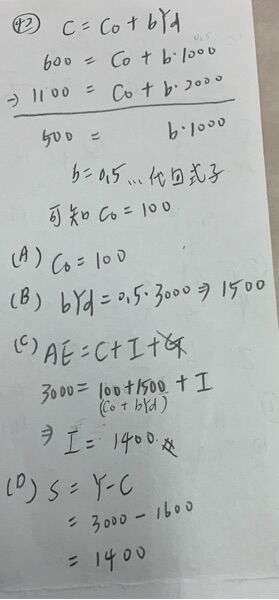 42) C = Co + bYd
600 = Co + b·1000
0.5
→ 1100 = Co + b·2000
500 = b·1000
b = 0.5 ... 代回式子
可知 Co = 100
(A) Co = 100
(B) bYd = 0.5·3000 ⇒ 1500
(C) AE = C + I + G
3000 = 100 + 1500 + I
(Co + bYd)
⇒ I = 1400
(D) S = Y - C
= 3000 - 1600
= 1400